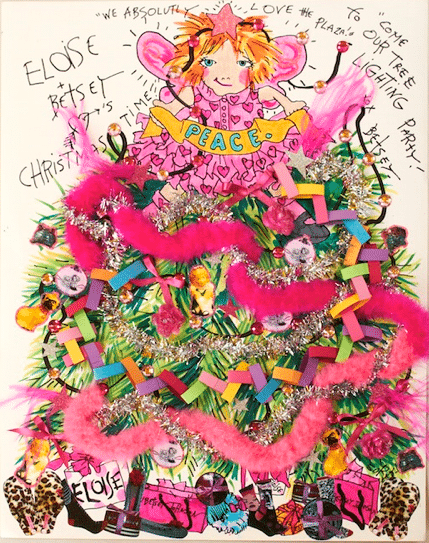 "WE ABSOLUTLY LOVE THE PLAZA"
ELOISE
+
BETSEY
CHRISTMAS TIME
TO "COME
OUR TREE
LIGHTING PARTY!
XOX
BETSEY
PEACE.
ELOISE